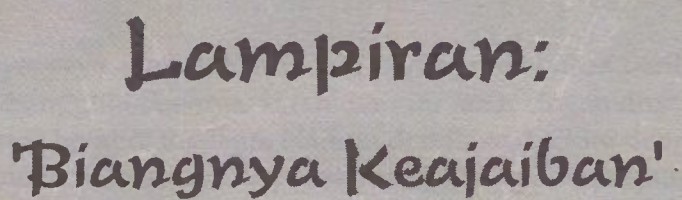 Lampiran:
'Biangnya Keajaiban'